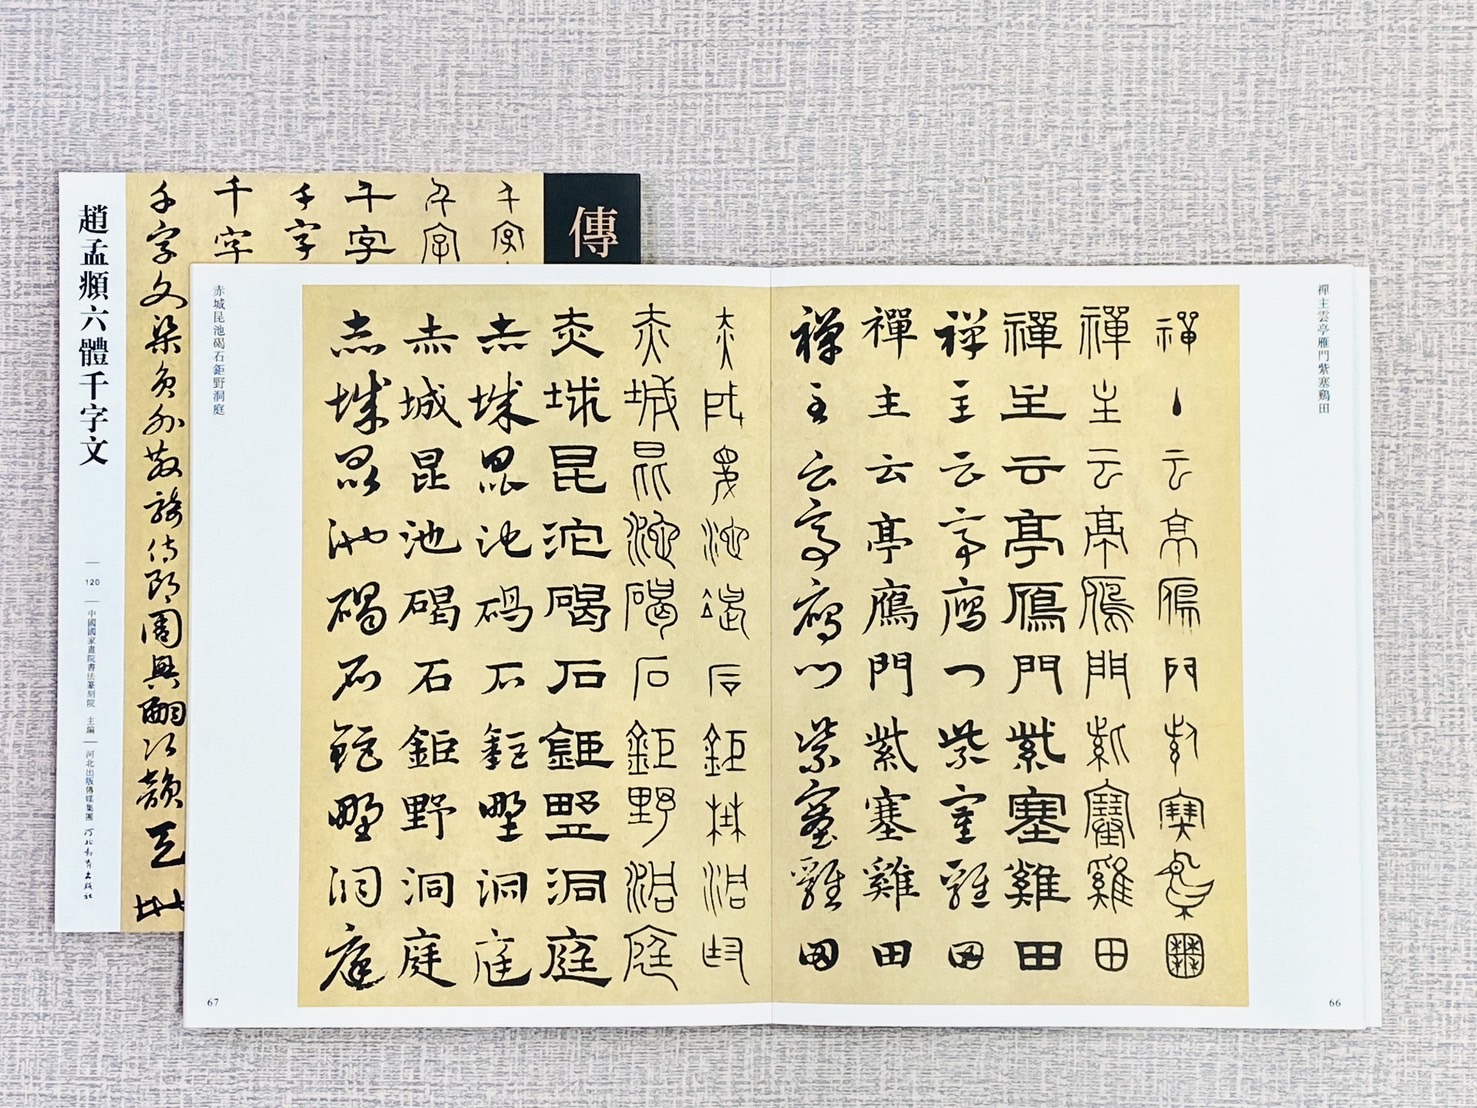 傳
千字
千字
千字
千字
千字
千字文梁員外散騎侍郎周興嗣次韻天地
趙孟頫六體千字文
120
中國國家畫院書法篆刻院 主編
河北出版傳媒集團 河北教育出版社
禪主雲亭雁門紫塞鷄田
禪主云亭鴈門紫塞雞田
禪主云亭鴈門紫塞雞田
禪主云亭鴈門紫塞雞田
禪主云亭鴈門紫塞雞田
禪主云亭鴈門紫塞雞田
禪主云亭鴈門紫塞雞田
66
赤城昆池碣石鉅野洞庭
赤城昆池碣石鉅野洞庭
赤城昆池碣石鉅野洞庭
赤城昆池碣石鉅野洞庭
赤城昆池碣石鉅野洞庭
赤城昆池碣石鉅野洞庭
赤城昆池碣石鉅野洞庭
67